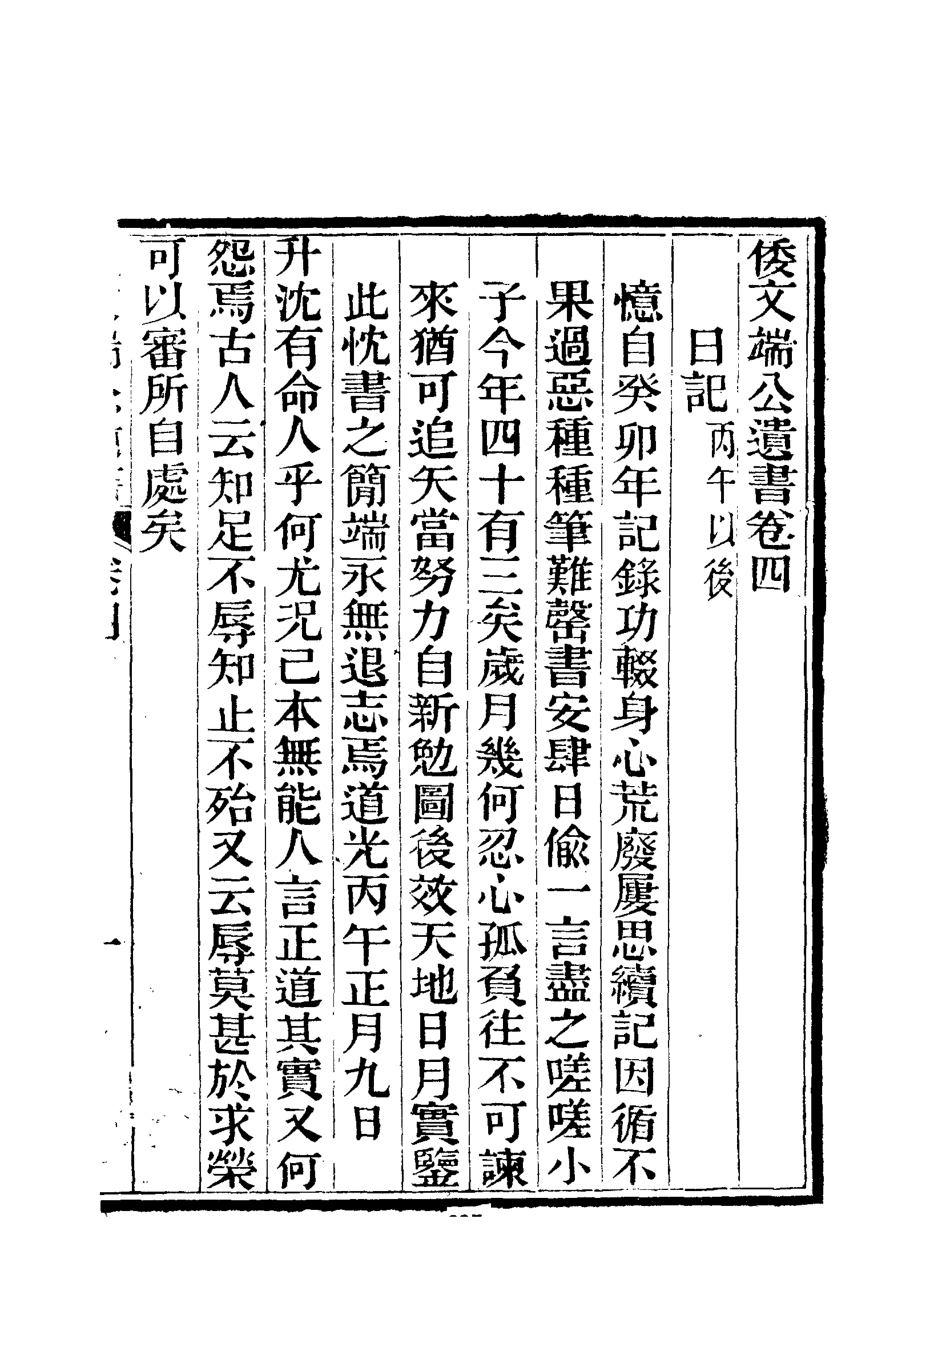 倭文端公遺書卷四
日記丙午以後
憶自癸卯年記錄功輟身心荒廢屢思續記因循不
果過惡種種筆難罄書安肆日偷一言盡之嗟嗟小
子今年四十有三矣歲月幾何忍心孤負往不可諫
來猶可追矢當努力自新勉圖後效天地日月實鑒
此忱書之簡端永無退志焉道光丙午正月九日
升沈有命人乎何尤況己本無能人言正道其實又何
怨焉古人云知足不辱知止不殆又云辱莫甚於求榮
可以審所自處矣